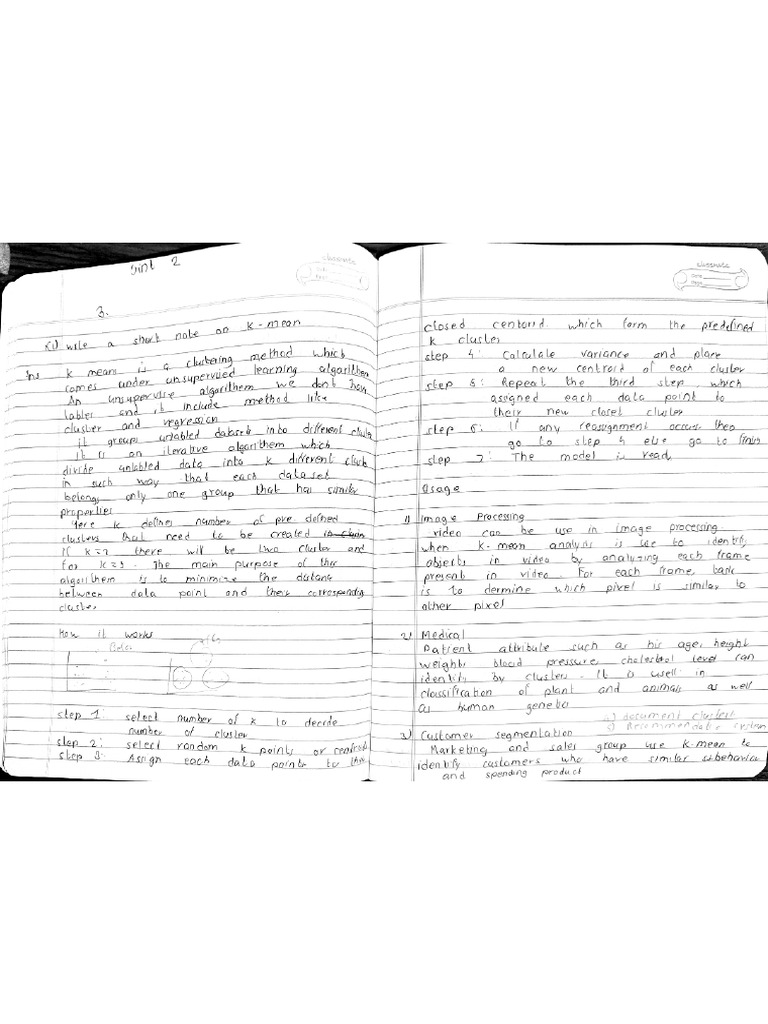 Unit 2
classmate
Date
Page
3.
Q) write a short note on k-mean
Ans k means is a clustering method which
comes under unsupervised learning algorithm
An unsupervise algorithem we dont have
lables and it include method like
cluster and regression
it groups unlabled dataset into different cluster
It is an iterative algorithem which
divide unlabled data into k different cluster
in such way that each dataset
belong only one group that has similar
properties
Here k defines number of pre defined
clusters that need to be created
If k=2 there will be two cluster and
for k=3. The main purpose of this
algorithem is to minimize the distance
between data point and their corresponding
cluster
How it works
Data
step 1: select number of k to decide
number of cluster
step 2: select random k points or centroids
step 3: Assign each data points to their
classmate
Date
Page
closed centorid which form the predefined
k cluster
step 4: Calculate variance and place
a new centroid of each cluster
step 5: Repeat the third step which
assigned each data point to
their new closed cluster
step 6: If any reassignment occurs then
go to step 4 else go to finish
step 7: The model is read
Usage
1) Image Processing
video can be use in image processing
when k-mean analysis is use to identify
objects in video by analyzing each frame
present in video. For each frame, task
is to dermine which pixel is similar to
other pixel
2) Medical
Patient attribute such as his age, height
weight, blood pressure, cholestrol level can
identify by cluster. It is usell in
classification of plant and animals as well
as human genetics
4) document cluster
5) Recommendable system
3) Customer segmentation
Marketing and sales group use k-mean to
identify customers who have similar behavior
and spending product